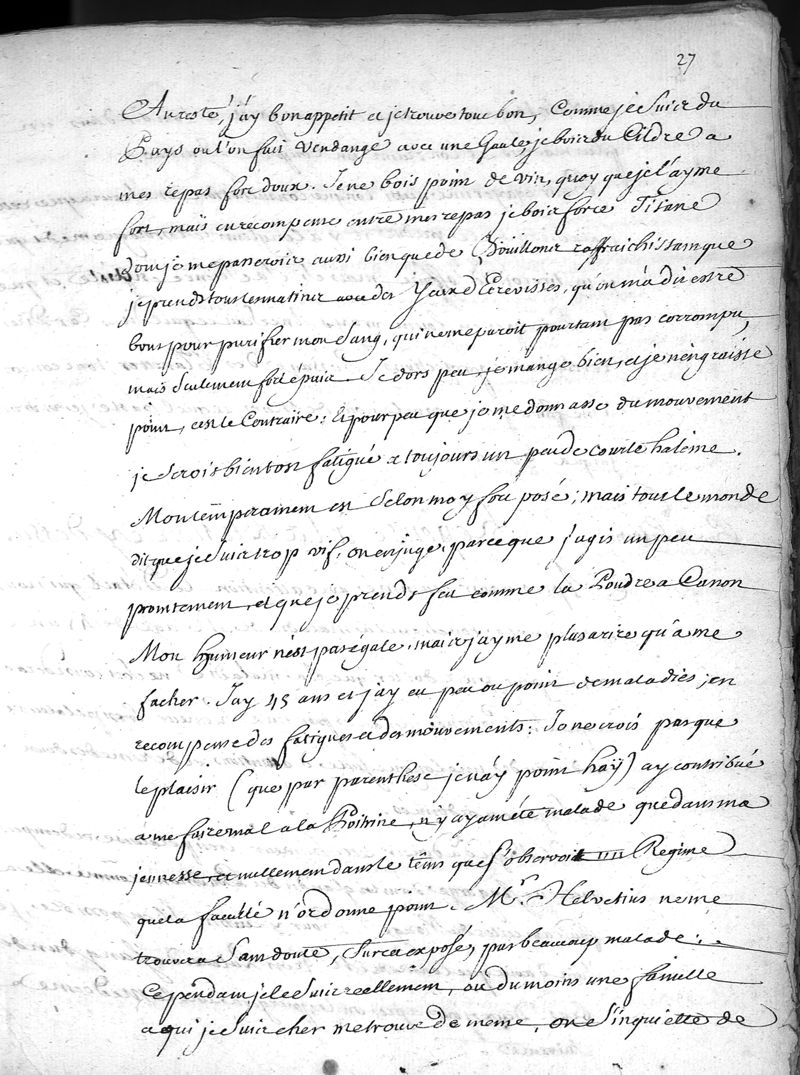 27
Au reste, j'ay bon appetit et je trouve tout bon, Comme je suis du
Pays ou l'on fait vendange avec une Gaule, je bois du Cildre a
mes repas fort doux. Je ne bois point de vin, quoy que je l'ayme
fort, mais en recompense entre mes repas je bois force Tisane
dont je me pance voir aussi bien que de Bouillons raffraichissant que
je prends tous les matins avec des Yeux d'Ecrevisses, qu'on m'a dit estre
bons pour purifier mon sang, qui ne me paroit pourtant pas corrompu,
mais seulement fort épaix. Je dors peu, je mange bien, et je n'engraisse
point, c'est le Contraire; Et pour peu que je me donnasse du mouvement
je serois bientost fatigué & toujours un peu de courte haleine.
Mon temperament est selon moy fort posé; mais tout le monde
dit que je suis trop vif, on en juge, parce que j'agis un peu
promtement, et que je prends feu comme la Poudre a Canon
Mon humeur n'est pas égale, mais j'ayme plus a rire qu'a me
facher. J'ay 45 ans et j'ay eu peu ou point de maladies, en
recompense des fatigues et des mouvements: Je ne crois pas que
le plaisir (que par parenthese je n'ay point haÿ) ay contribué
a me faire mal a la Poitrine, n'y ayant été malade que dans ma
jeunesse, et nullement dans le têms que j'observoit un Regime
que la faculté n'ordonne point. Mr. Helvetius ne me
trouvera sans doute, sur cet exposé, pas beaucoup malade;
Cependant je le suis reellement, ou du moins une famille
a qui je suis cher me trouve de meme, on s'inquiette de